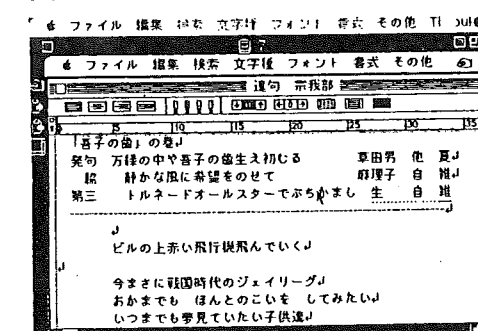 ファイル 編集 検索 文字種 フォント 書式 その他
ファイル 編集 検索 文字種 フォント 書式 その他
連句 宗我部
5 10 15 20 25 30 35
「吾子の歯」の巻
発句 万緑の中や吾子の歯生え初むる 草田男 他 夏
脇 静かな風に希望をのせて 麻理子 自 雑
第三 トルネードオールスターでぶちかまし 生 自 雑
ビルの上赤い飛行機飛んでいく
今まさに戦国時代のジェイリーグ
おかまでも ほんとのこいを してみたい
いつまでも夢見ていたい子供達